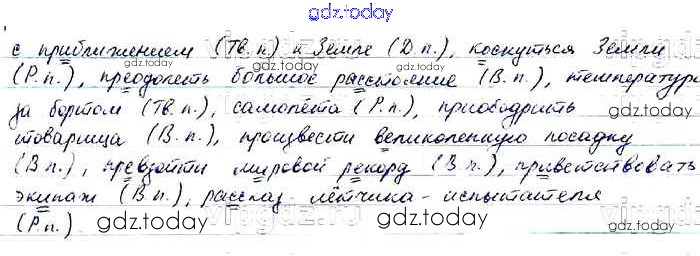 gdz.today
с приближением (Тв.п.) к Земле (Д.п.), коснуться Земли
(Р.п.), преодолеть большое расстояние (В.п.), температура
за бортом (Тв.п.), самолёта (Р.п.), приободрить
товарища (В.п.), произвести великолепную посадку
(В.п.), превзойти мировой рекорд (В.п.), приветствовать
экипаж (В.п.), рассказ лётчика-испытателя
(Р.п.)
gdz.today
gdz.today
gdz.today